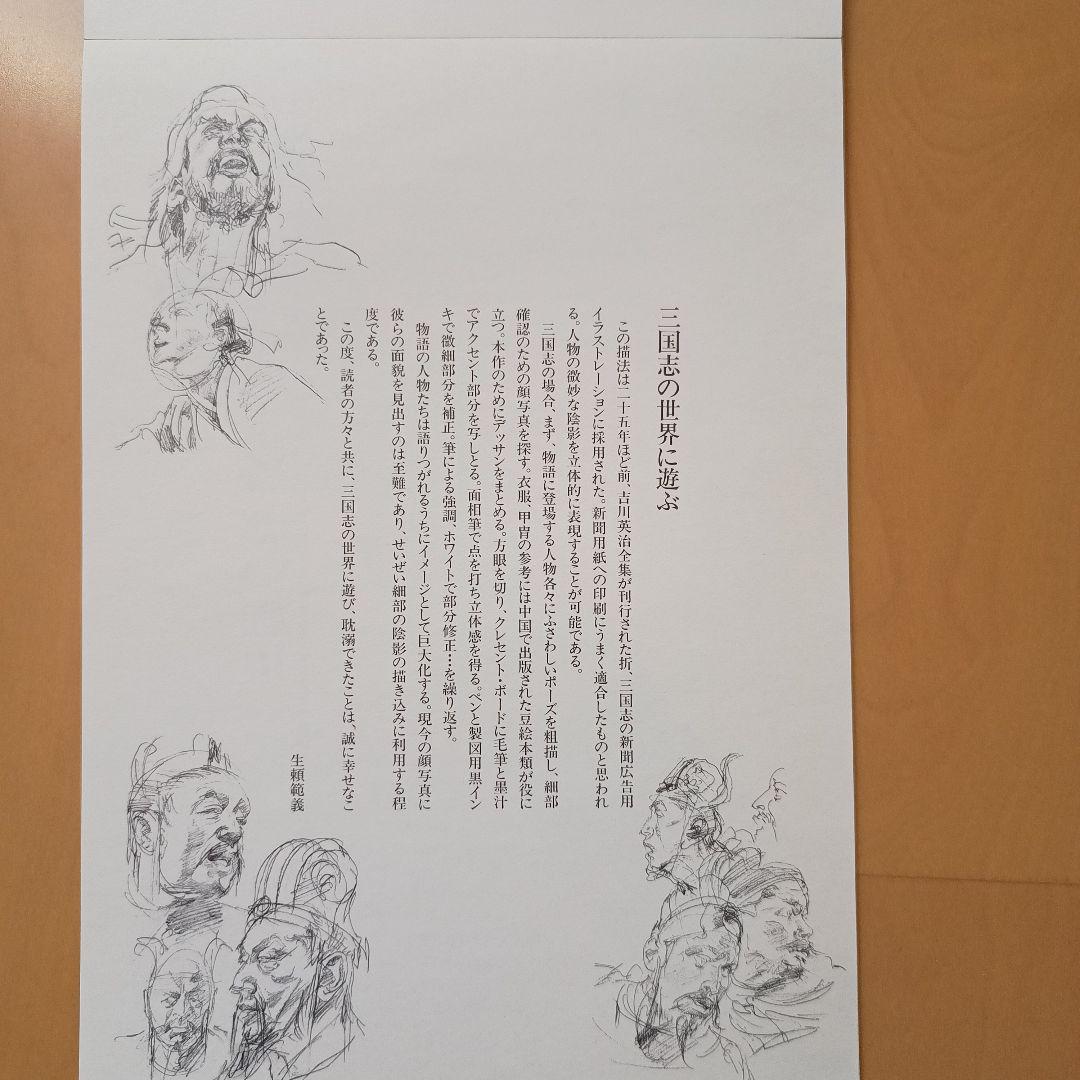 三国志の世界に遊ぶ
この描法は二十五年ほど前、吉川英治全集が刊行された折、三国志の新聞広告用
イラストレーションに採用された。新聞用紙への印刷にうまく適合したものと思われ
る。人物の微妙な陰影を立体的に表現することが可能である。
三国志の場合、まず、物語に登場する人物各々にふさわしいポーズを粗描し、細部
確認のための顔写真を探す。衣服、甲冑の参考には中国で出版された豆絵本類が役に
立つ。本作のためにデッサンをまとめる。方眼を切り、クレセント・ボードに毛筆と墨汁
でアクセント部分を写しとる。面相筆で点を打ち立体感を得る。ペンと製図用黒イン
キで微細部分を補正。筆による強調、ホワイトで部分修正…を繰り返す。
物語の人物たちは語りつがれるうちにイメージとして巨大化する。現今の顔写真に
彼らの面貌を見出すのは至難であり、せいぜい細部の陰影の描き込みに利用する程
度である。
この度、読者の方々と共に、三国志の世界に遊び、耽溺できたことは、誠に幸せなこ
とであった。
生頼範義